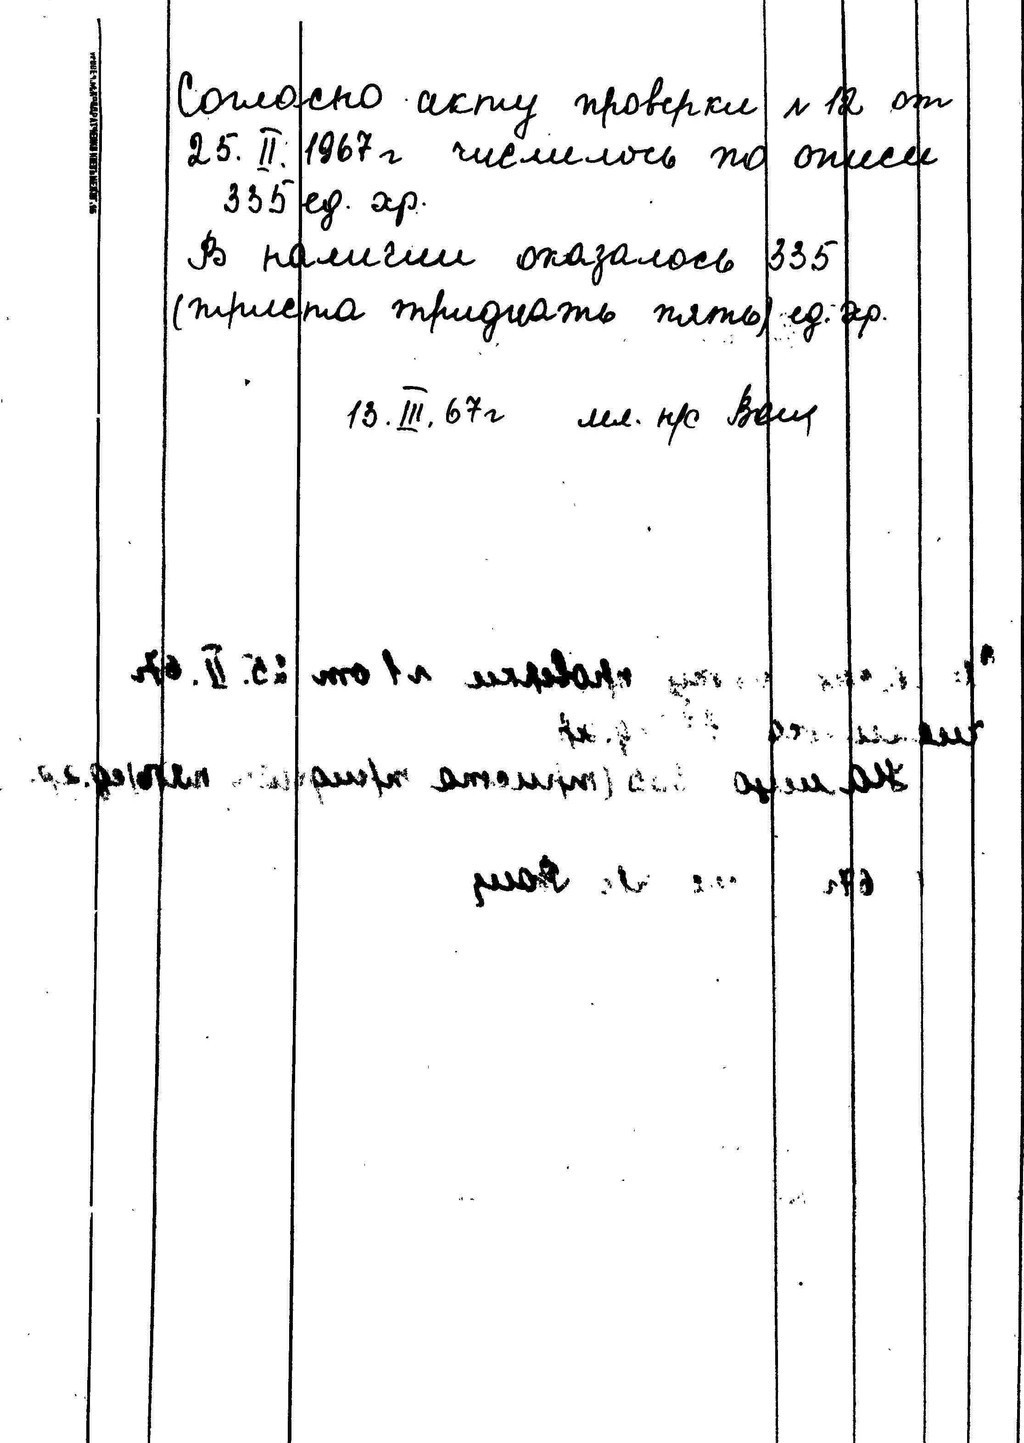 Согласно акту проверки № 12 от
25. II. 1967 г числилось по описи
335 ед. хр.
В наличии оказалось 335
(триста тридцать пять) ед. хр.
13. III. 67 г мл. н/с
проверки № 1 от 25. II. 67 г
числилось
Налицо 335 (триста тридцать пять) ед. хр.
67 г